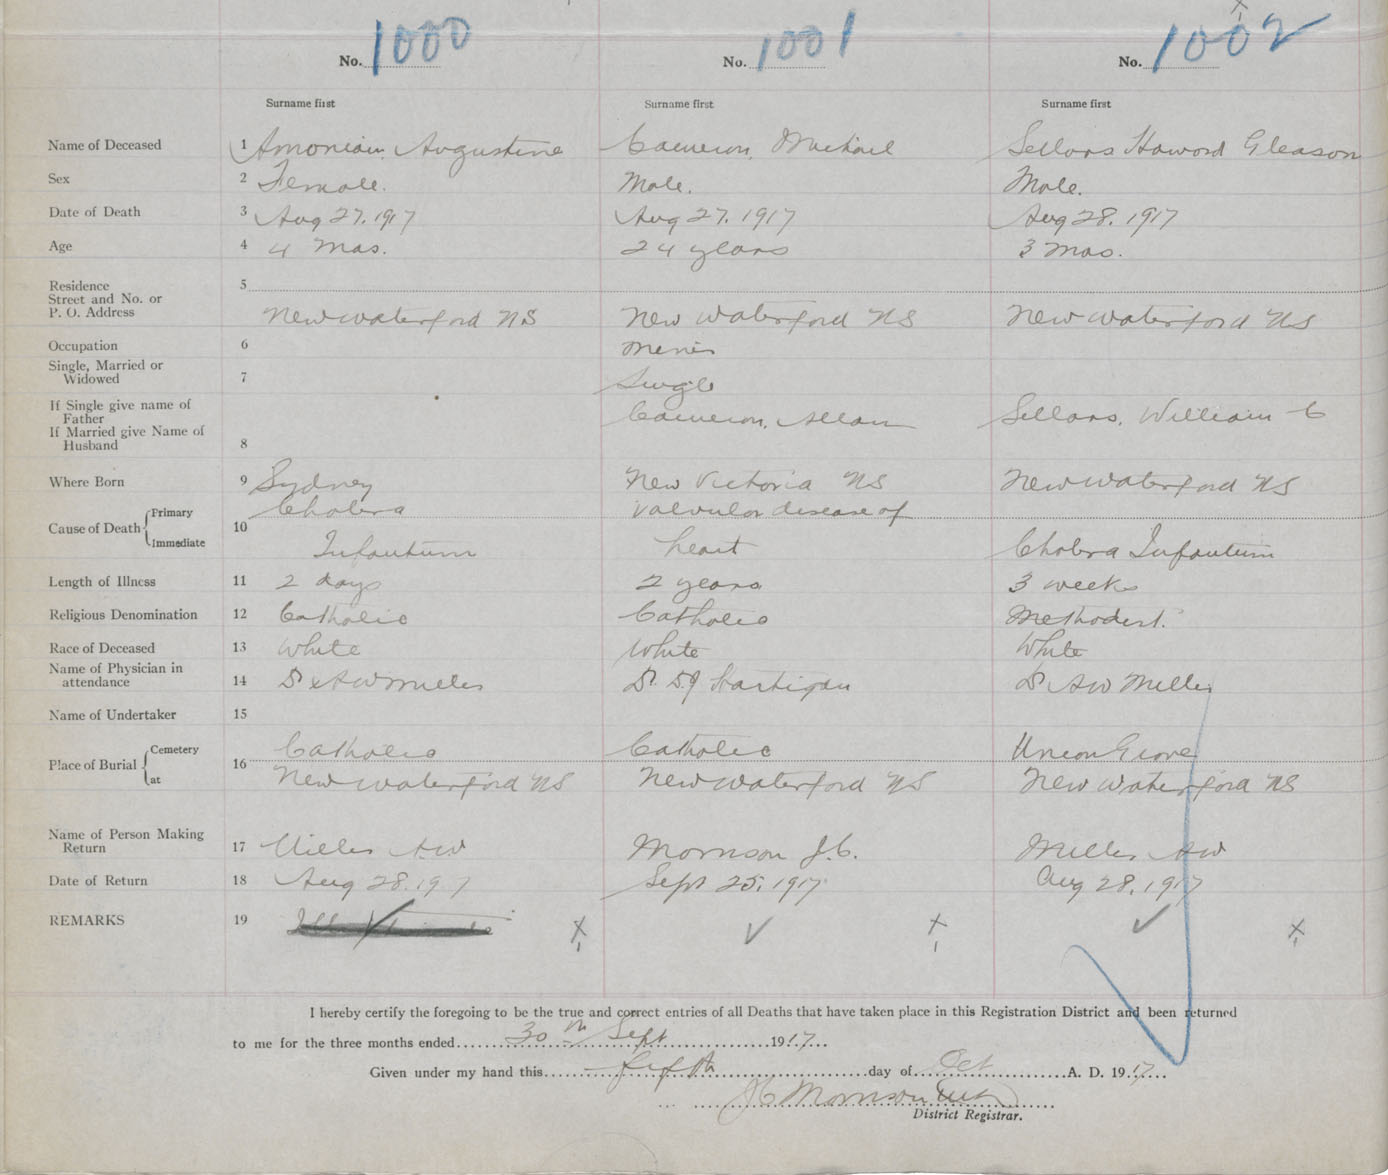 No. 1000 No. 1001 No. 1002
Surname first Surname first Surname first
Name of Deceased 1 Augustine Cameron, Michael Sellars Howard Gleason
Sex 2 Female. Male. Male.
Date of Death 3 Aug 27, 1917 Aug 27, 1917 Aug 28, 1917
Age 4 4 Mos. 24 years 3 Mos.
Residence 5
Street and No. or
P. O. Address New Waterford NS New Waterford NS New Waterford NS
Occupation 6 Miner
Single, Married or
Widowed 7 Single
If Single give name of
Father Cameron, Allan Sellars, William C
If Married give Name of
Husband 8
Where Born 9 Sydney New Victoria NS New Waterford NS
Cause of Death Primary 10 Cholera Valvular disease of
Immediate Infantum heart Cholera Infantum
Length of Illness 11 2 days 2 years 3 weeks
Religious Denomination 12 Catholic Catholic Methodist.
Race of Deceased 13 White White White
Name of Physician in
attendance 14 Dr A W Miller Dr. D J Hartigan Dr A W Miller
Name of Undertaker 15
Place of Burial Cemetery 16 Catholic Catholic Union Grove
at New Waterford NS New Waterford NS New Waterford NS
Name of Person Making
Return 17 Miller A.W Morrison J.C. Miller A W
Date of Return 18 Aug 28, 1917 Sept 25, 1917 Aug 28, 1917
REMARKS 19
I hereby certify the foregoing to be the true and correct entries of all Deaths that have taken place in this Registration District and been returned
to me for the three months ended 30th Sept 1917
Given under my hand this fifth day of Oct A. D. 1917
J C Morrison
District Registrar.